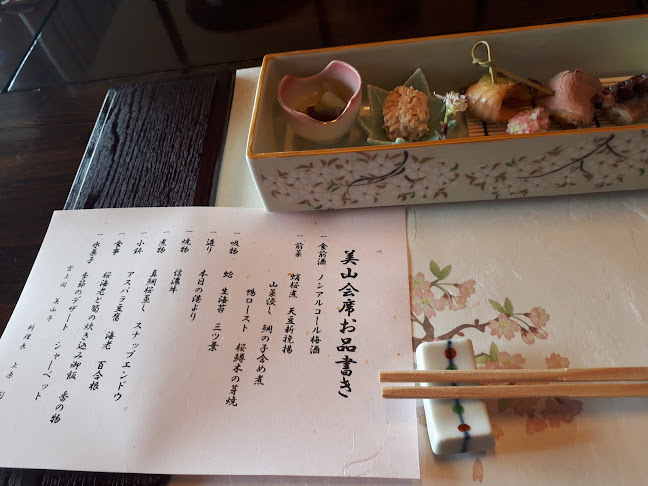 美山会席お品書き
一 食前酒 ノンアルコール梅酒
一 前菜 蛸桜煮 天豆折挽揚
山菜浸し 鯛の子含め煮
鴨ロースト 桜鱒木の芽焼
一 吸物 蛤 生海苔 三ツ葉
一 造り 本日の港より
一 焼物 信濃牛
一 煮物 真鯛桜蒸し スナップエンドウ
一 小鉢 アスパラ豆腐 海老 百合根
一 食事 桜海老と筍の炊き込み御飯 香の物
一 水菓子 季節のデザート シャーベット
雲上閣 美山亭 料理長 上原